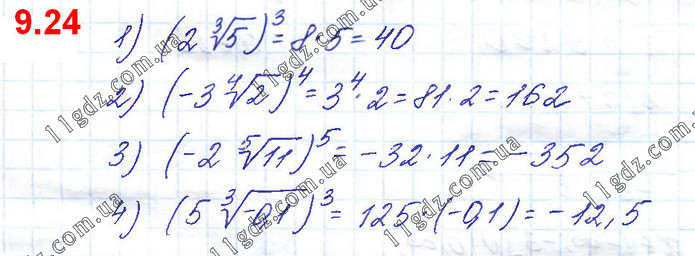 9.24
1) (2 ∛5)³ = 8·5 = 40
2) (-3 ∜2)⁴ = 3⁴·2 = 81·2 = 162
3) (-2 ⁵√11)⁵ = -32·11 = -352
4) (5 ∛-0,1)³ = 125·(-0,1) = -12,5
11gdz.com.ua
11gdz.com.ua
11gdz.com.ua
11gdz.com.ua
11gdz.com.ua